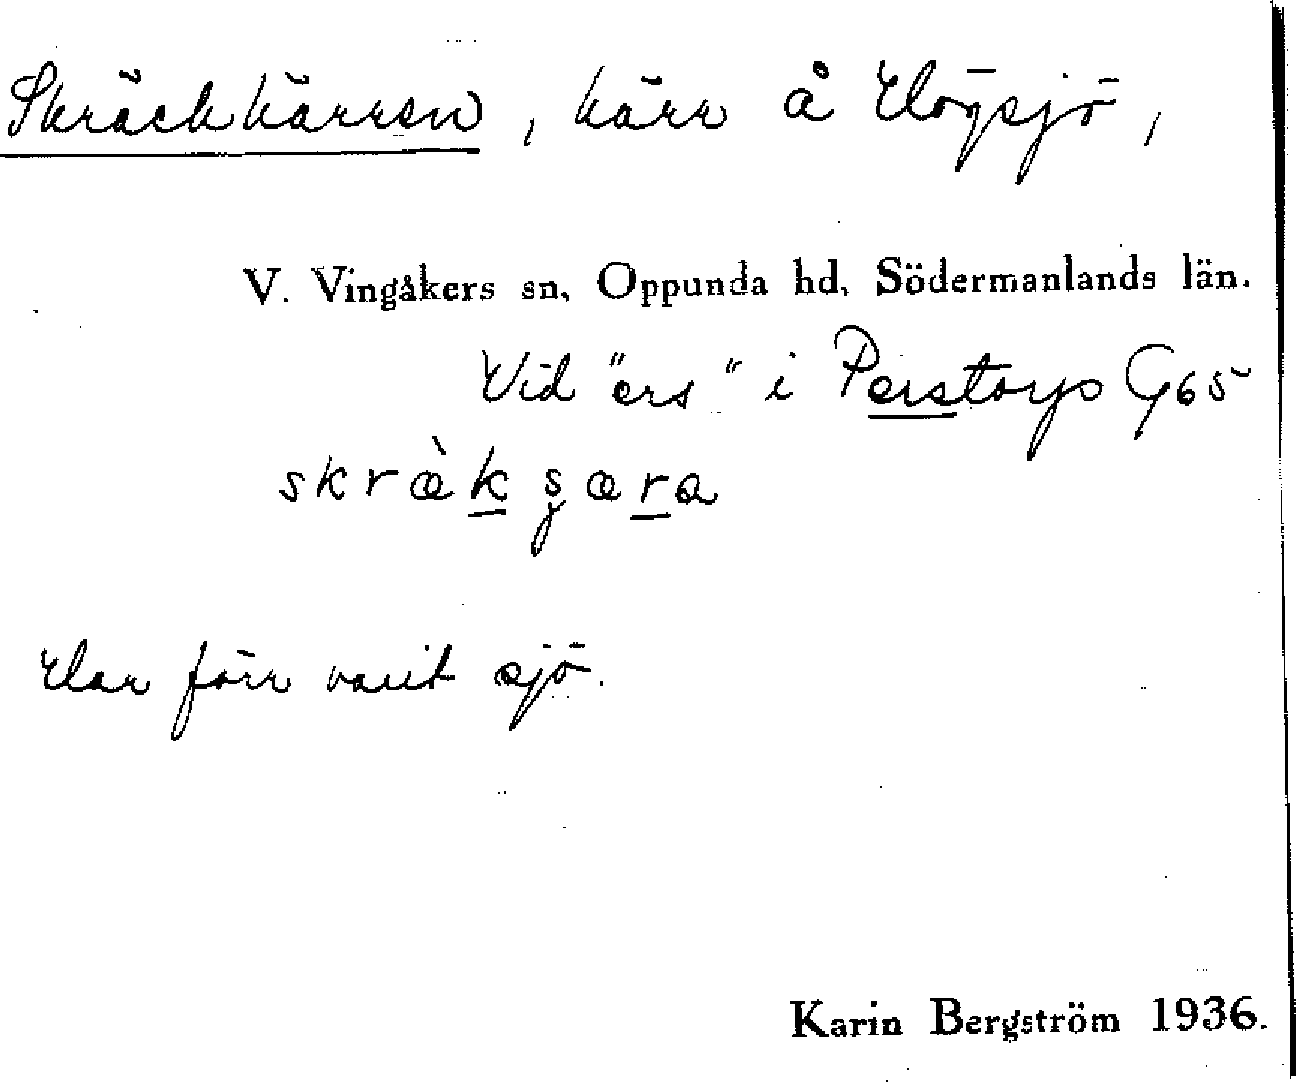 Skräckkärren, kärr å Högsjö,
V. Vingåkers sn, Oppunda hd, Södermanlands län.
Vid "ers" i Perstorps G65
skrὰkşæra
Har förr varit sjö.
Karin Bergström 1936.